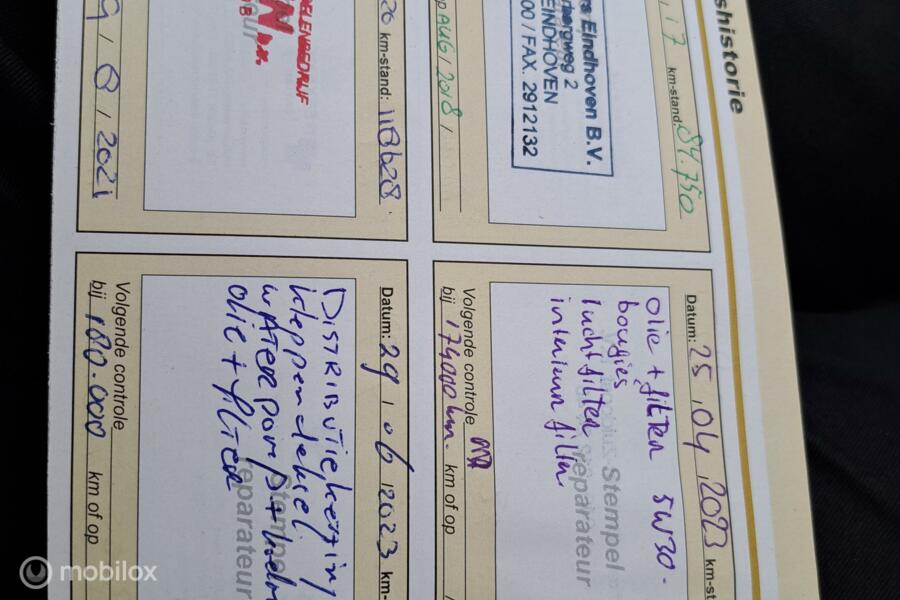 shistorie
17 km-stand: 84.750
rs Eindhoven B.V.
rbergweg 2
EINDHOVEN
00 / FAX. 2912132
op AUG / 2018 /
Datum: 25 . 04 . 2023 km-st
olie + filter 5W30.
bougies
luchtfilter
interieur filter
Stempel
reparateur
Volgende controle
bij 174000 km. km of op
26 km-stand: 118628.
DELENBEDRIJF
N B.V.
9 / 8 / 2021
Datum: 29 / 06 / 2023 km-
DISTRIBUTIEKETTING
kleppendeksel
WATERPOMP +
olie + FILTER
Stempel
reparateur
Volgende controle
bij 180.000 km of op
mobilox